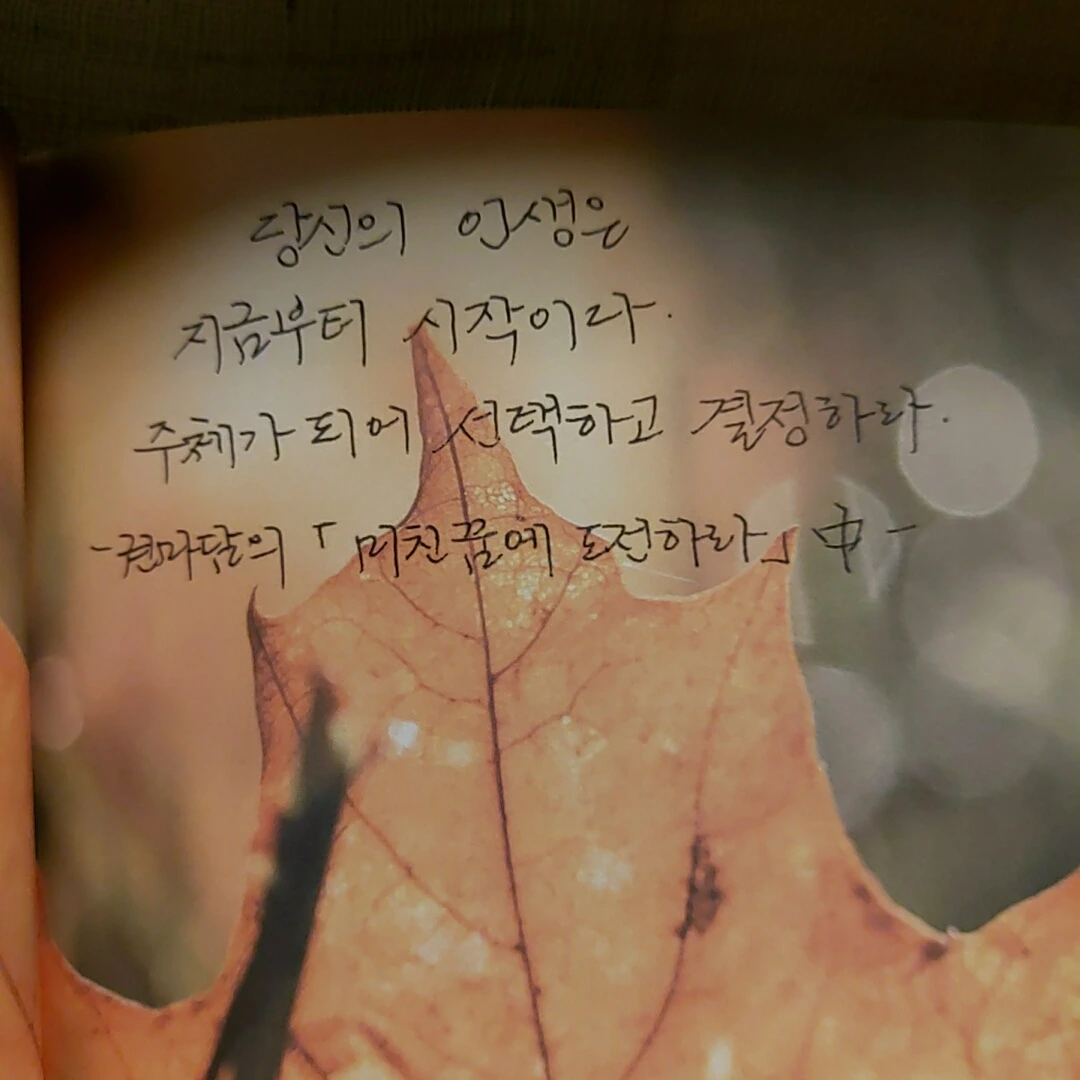 당신의 인생은
지금부터 시작이다.
주체가 되어 선택하고 결정하라.
-권마담의 「미친꿈에 도전하라」 中-